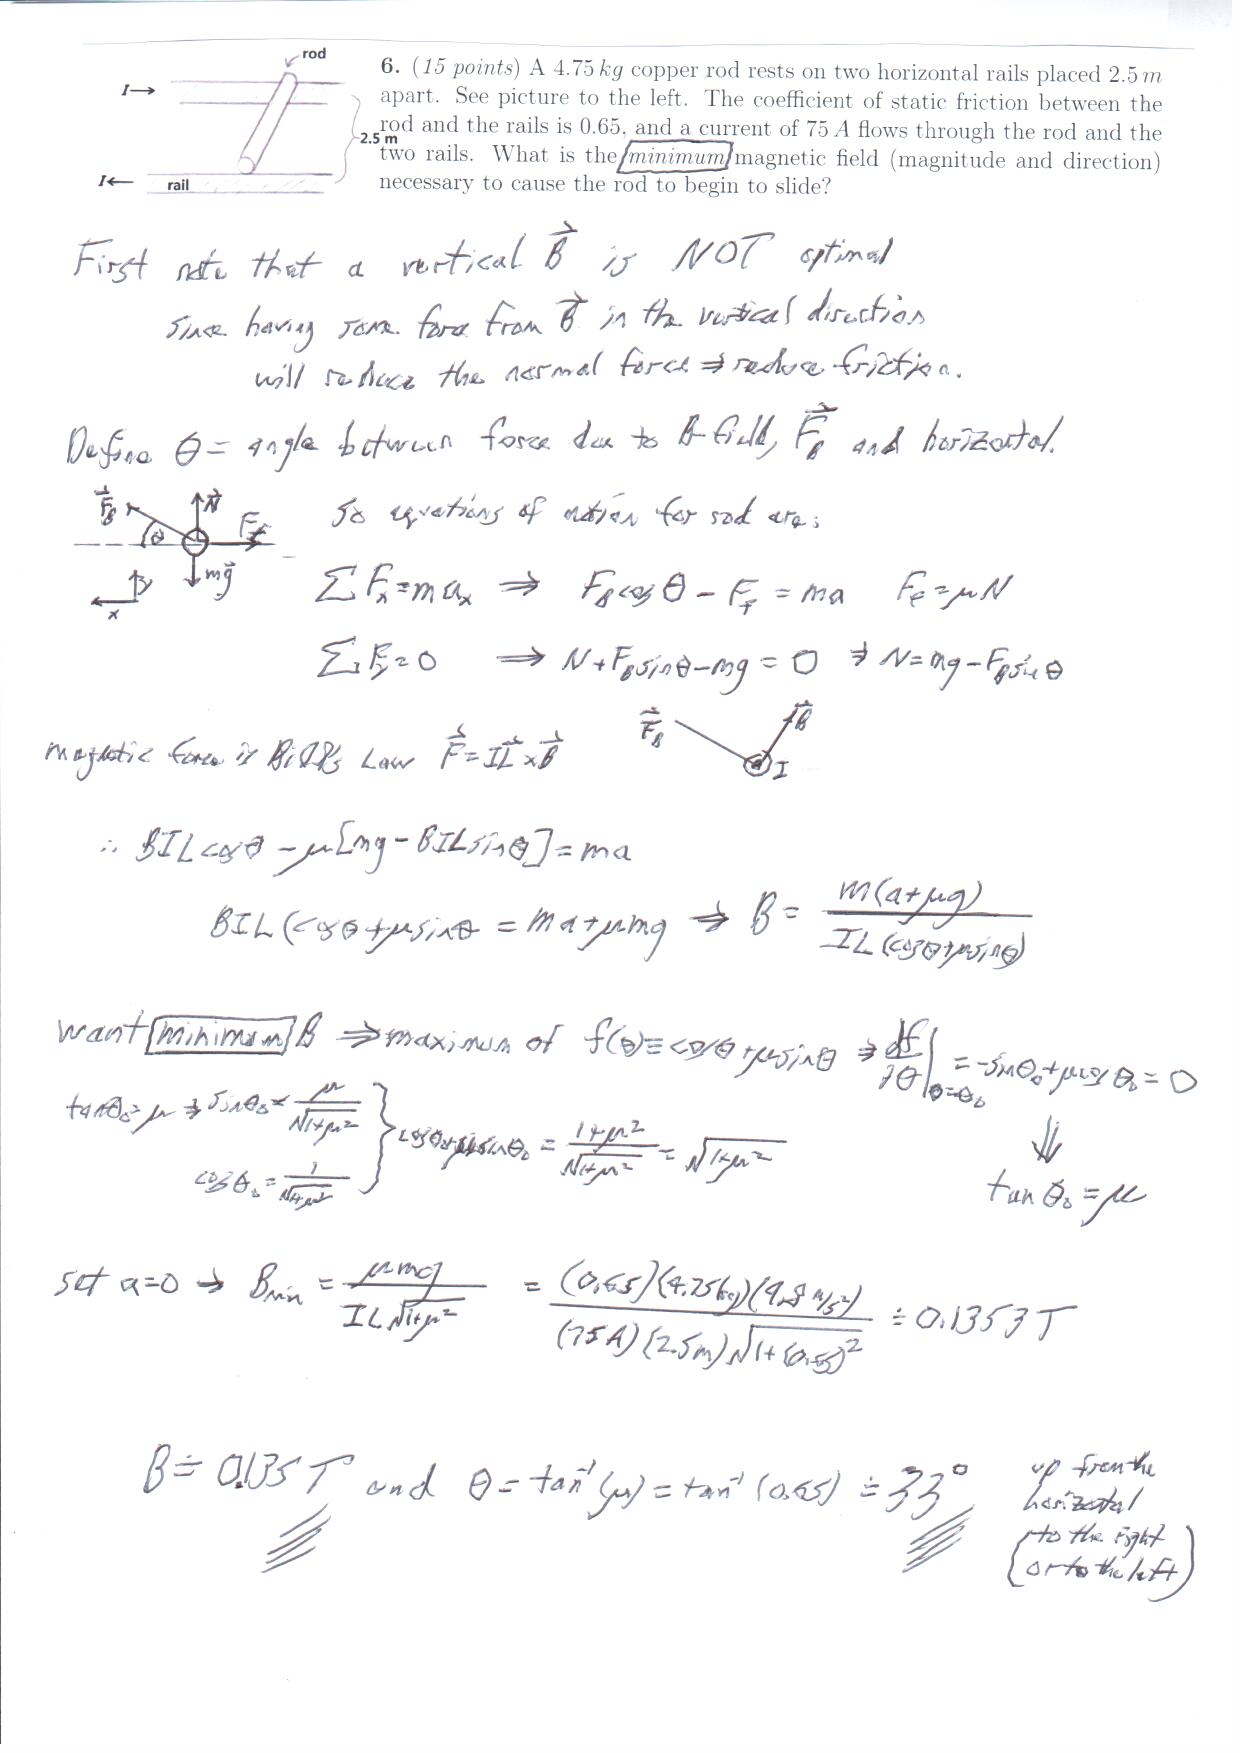 rod
I→
2.5 m
I←
rail
6. (15 points) A 4.75 kg copper rod rests on two horizontal rails placed 2.5 m
apart. See picture to the left. The coefficient of static friction between the
rod and the rails is 0.65, and a current of 75 A flows through the rod and the
two rails. What is the minimum magnetic field (magnitude and direction)
necessary to cause the rod to begin to slide?
First note that a vertical B⃗ is NOT optimal
since having some force from B⃗ in the vertical direction
will reduce the normal force ⇒ reduce friction.
Define θ = angle between force due to B-field, F⃗_B and horizontal.
F⃗_B θ N⃗ F_f mg⃗ y x
So equations of motion for rod are:
ΣF_x = ma_x ⇒ F_B cos θ - F_f = ma F_f = μN
ΣF_y = 0 ⇒ N + F_B sin θ - mg = 0 ⇒ N = mg - F_B sin θ
magnetic force is Law F⃗ = IL⃗ × B⃗
F⃗_B B⃗ I
∴ BIL cos θ - μ[mg - BIL sin θ] = ma
BIL(cos θ + μ sin θ = ma + μmg ⇒ B = m(a+μg) / IL(cos θ + μ sin θ)
want minimum B ⇒ maximum of f(θ) ≡ cos θ + μ sin θ ⇒ df/dθ|θ=θ₀ = -sin θ₀ + μ cos θ₀ = 0
⇓
tan θ₀ = μ
tan θ₀ = μ ⇒ sin θ₀ = μ/√(1+μ²)
cos θ₀ = 1/√(1+μ²)
} cos θ₀ + μ sin θ₀ = (1+μ²)/√(1+μ²) = √(1+μ²)
set a=0 → B_min = μmg / IL√(1+μ²) = (0.65)(4.75kg)(9.8 m/s²) / (75A)(2.5m)√(1+(0.65)²) ≐ 0.1353 T
B ≐ 0.135 T and θ = tan⁻¹(μ) = tan⁻¹(0.65) ≐ 33°
up from the
horizontal
(to the right
or to the left)